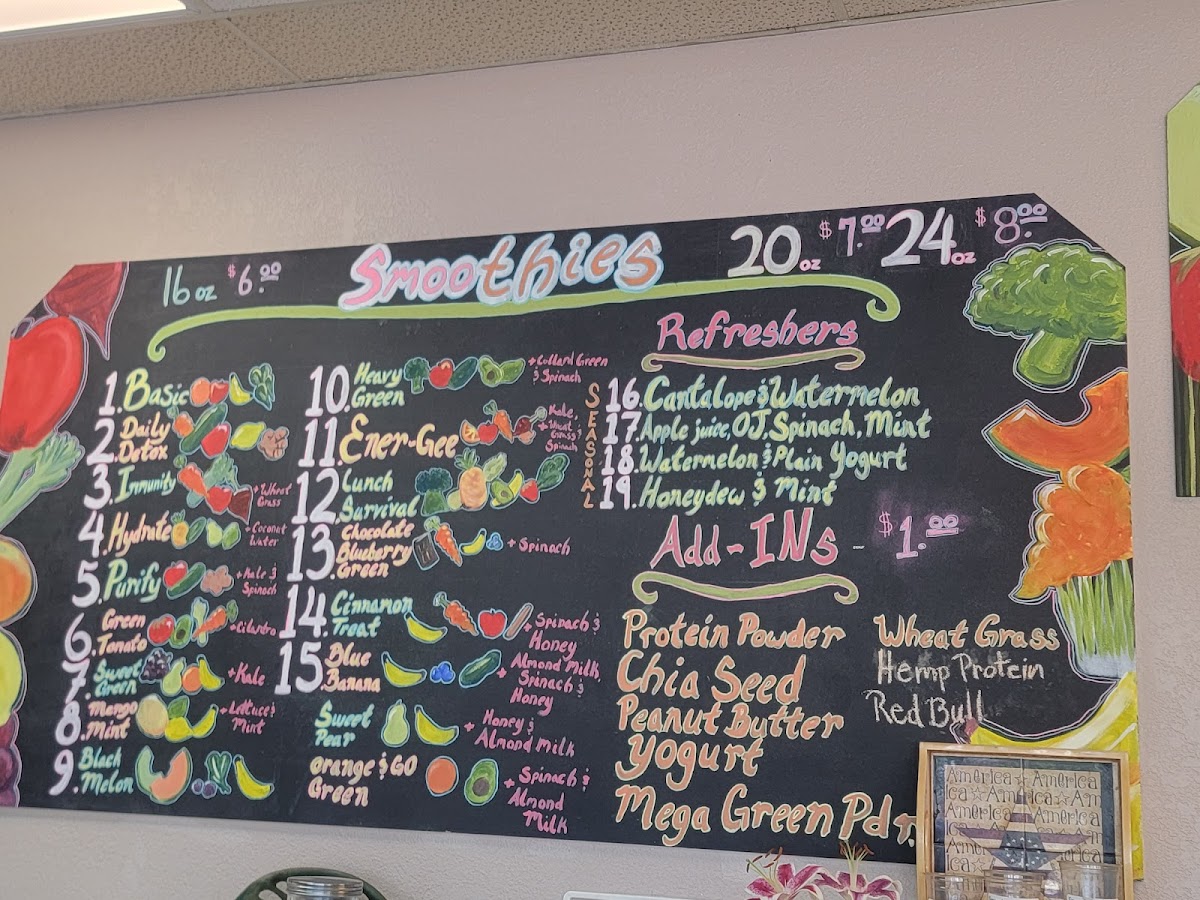 16 oz $6.00
Smoothies
20 oz $7.00 24 oz $8.00
1. Basic
2. Daily Detox
3. Immunity + Wheat Grass
4. Hydrate + Coconut Water
5. Purify + Kale & Spinach
6. Green Tomato + Cilantro
7. Sweet Green + Kale
8. Mango Mint + Lettuce & Mint
9. Black Melon
10. Heavy Green + Collard Green & Spinach
11. Ener-Gee + Kale, Wheat Grass & Spinach
12. Lunch Survival
13. Chocolate Blueberry Green + Spinach
14. Cinnamon Treat + Spinach & Honey
15. Blue Banana + Almond Milk, Spinach & Honey
Sweet Pear + Honey & Almond Milk
Orange & GO Green + Spinach & Almond Milk
Refreshers
SEASONAL
16. Cantalope & Watermelon
17. Apple juice, OJ, Spinach, Mint
18. Watermelon & Plain Yogurt
19. Honeydew & Mint
Add-INs - $1.00
Protein Powder
Chia Seed
Peanut Butter
Yogurt
Mega Green Pdr.
Wheat Grass
Hemp Protein
Red Bull
America ☆ America
ica ☆ America ☆ Am